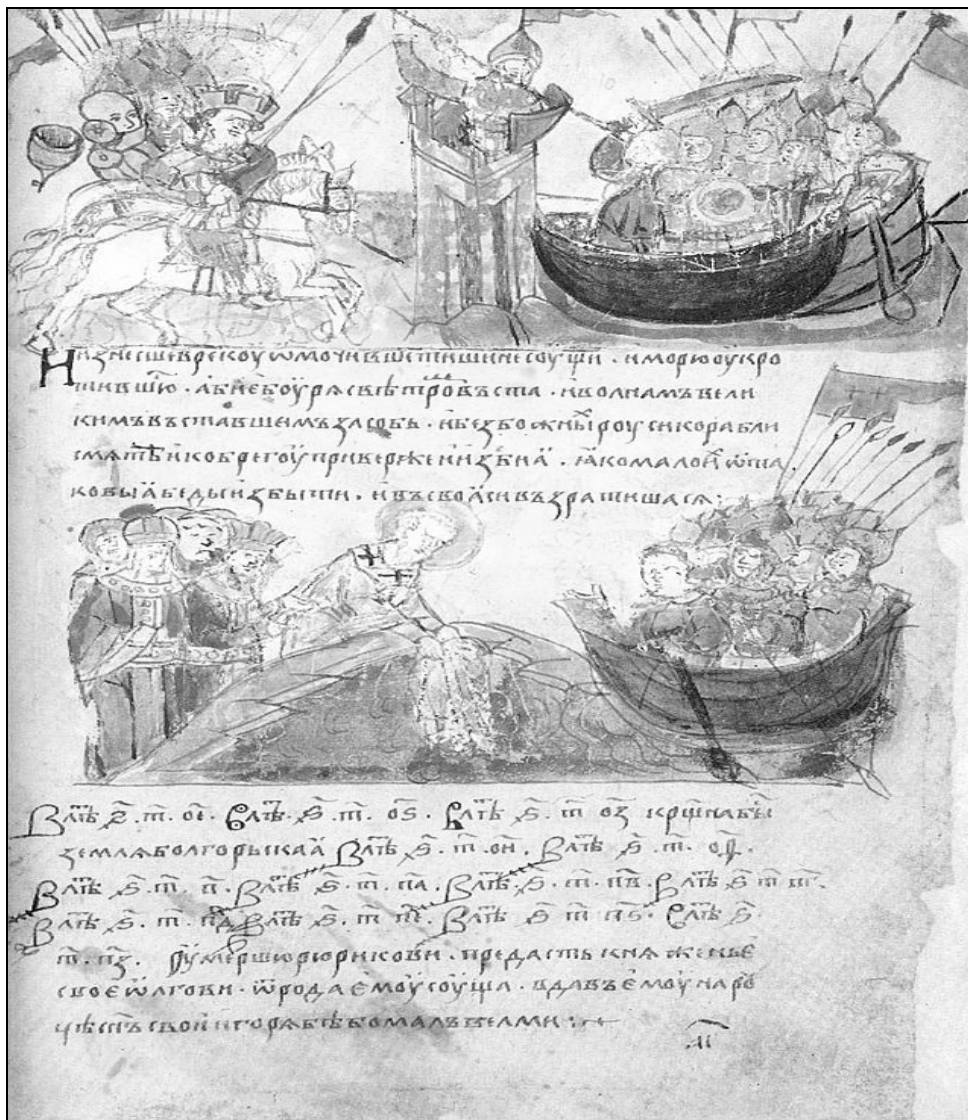 Изнесше в рекоу омочивше тишине соущи · и морю оукро
тившю · абие боуря с вѣтромъ въста · и волнамъ вели
кимъ въставшемъ засобь · и безбожны роуси корабли
смяте и к берегоу приверже и изби ꙗ · ꙗко мало и ѿ та
ковыꙗ беды избыти · и въ своꙗси възратишася :
В лѣт ҂ѕ҃ · т҃ · о҃е · В лѣт ҂ѕ҃ · т҃ · о҃ѕ · В лѣт ҂ѕ҃ · т҃ о҃з крщна бы
земля болгорьскаꙗ В лѣт ҂ѕ҃ · т҃ · о҃и · В лѣт ҂ѕ҃ · т҃ · о҃ѳ ·
В лѣт ҂ѕ҃ · т҃ · п҃ · В лѣт ҂ѕ҃ · т҃ · п҃а · В лѣт ҂ѕ҃ · т҃ · п҃в · В лѣт ҂ѕ҃ т҃ п҃г ·
В лѣт ҂ѕ҃ · т҃ · п҃д В лѣт ҂ѕ҃ · т҃ п҃е · В лѣт ҂ѕ҃ т҃ п҃ѕ · В лѣт ҂ѕ҃
т҃ · п҃з · Оумершю рюрикови · предасть княженье
свое ѡлгови · ѿ рода емоу соуща · вдавъ емоу на роу
цѣ снъ свои игоря бѣ бо малъ велми :